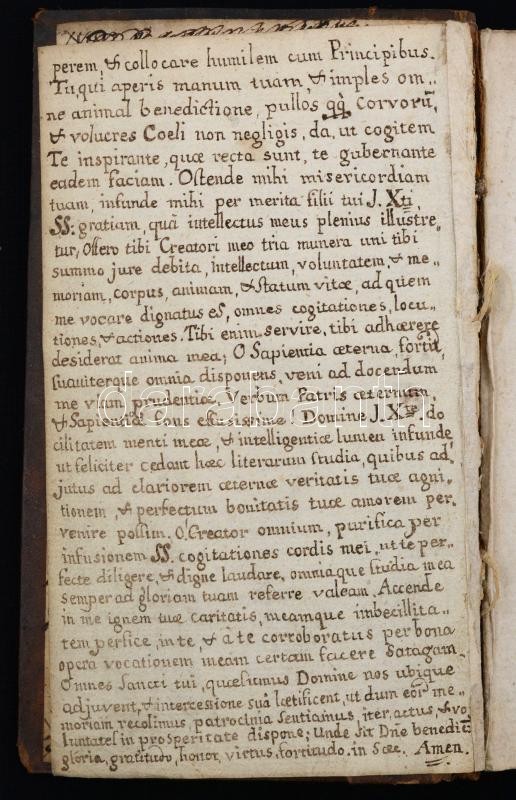 perem, & collocare humilem cum Principibus.
Tu, qui aperis manum tuam, & imples om-
ne animal benedictione, pullos qq̃ Corvorū,
& volucres Coeli non negligis, da, ut cogitem
Te inspirante, quæ recta sunt, te gubernante
eadem faciam. Ostende mihi misericordiam
tuam, infunde mihi per merita filii tui J. Xti,
SS: gratiam, quâ intellectus meus plenius illustre-
tur, Offero tibi Creatori meo tria munera uni tibi
summo jure debita, intellectum, voluntatem, & me-
moriam, corpus, animam, & statum vitæ, ad quem
me vocare dignatus es, omnes cogitationes, locu-
tiones, & actiones. Tibi enim servire, tibi adhærere
desiderat anima mea; O Sapientia æterna, fortit,
suauiterque omnia disponens, veni ad docendum
me viam prudentiæ. Verbum Patris æternum,
& Sapientiæ Fons effusissime! Domine J. Xte, do
cilitatem menti meæ, & intelligentiæ lumen infunde,
ut feliciter cedant hæc literarum studia, quibus ad-
jutus ad clariorem æternæ veritatis tuæ agni-
tionem, & perfectum bonitatis tuæ amorem per-
venire possim. O Creator omnium, purifica per
infusionem SS. cogitationes cordis mei, ut te per-
fecte diligere, & digne laudare, omniaque studia mea
semper ad gloriam tuam referre valeam. Accende
in me ignem tuæ caritatis, meamque imbecillita-
tem perfice, in te, & à te corroboratus per bona
opera vocationem meam certam facere satagam.
Omnes Sancti tui, quæsumus Domine nos ubique
adjuvent, & intercessione suâ lætificent, ut dum eor̃ me-
moriam recolimus, patrocinia sentiamus, iter, actus, & vo
luntates in prosperitate dispone; Unde sit Dñe benedict:
gloria, gratitudo, honor, virtus, fortitudo. in Sæc. Amen.
darabanth